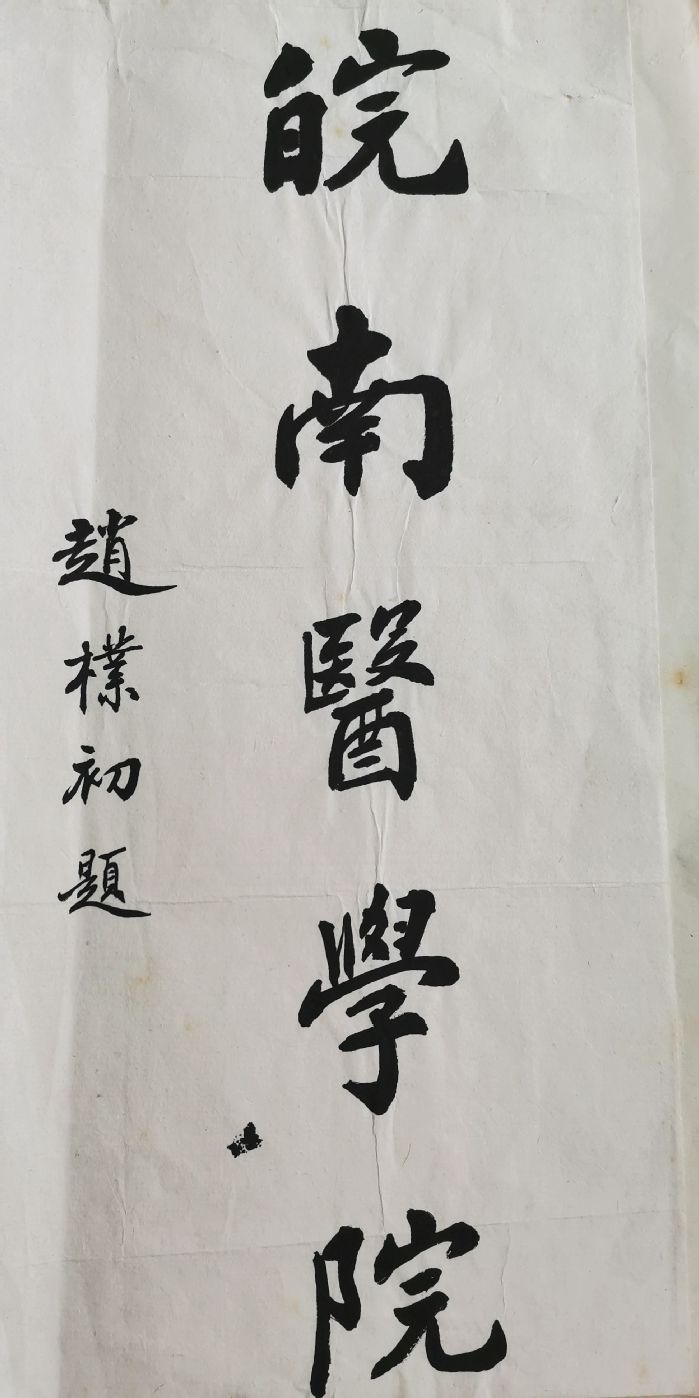 皖南醫學院
趙樸初題